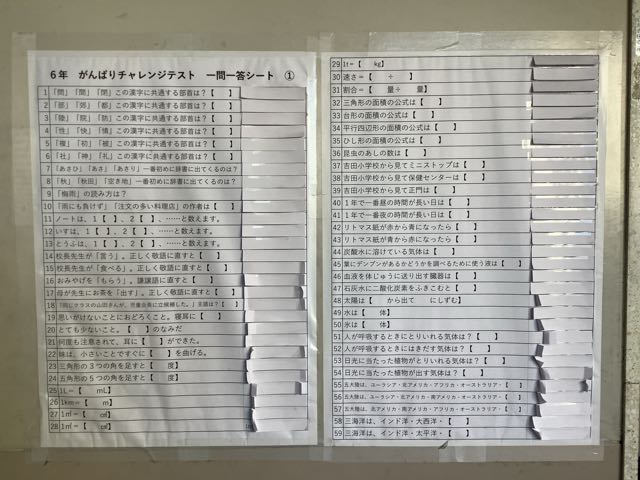 6年 がんばりチャレンジテスト 一問一答シート ①
1 「問」「聞」「閉」この漢字に共通する部首は?【 】
2 「部」「郊」「都」この漢字に共通する部首は?【 】
3 「陸」「院」「防」この漢字に共通する部首は?【 】
4 「性」「快」「情」この漢字に共通する部首は?【 】
5 「複」「初」「被」この漢字に共通する部首は?【 】
6 「社」「神」「礼」この漢字に共通する部首は?【 】
7 「あさひ」「あさ」「あさり」一番初めに辞書に出てくるのは?
8 「秋」「秋田」「空き地」一番初めに辞書に出てくるのは?
9 「梅雨」の読み方は?
10 「雨にも負けず」「注文の多い料理店」の作者は【 】
11 ノートは、1【 】、2【 】、……と数えます。
12 いすは、1【 】、2【 】、……と数えます。
13 とうふは、1【 】、2【 】、……と数えます。
14 校長先生が「言う」。正しく敬語に直すと【 】
15 校長先生が「食べる」。正しく敬語に直すと【 】
16 おみやげを「もらう」。謙譲語に直すと【 】
17 母が先生にお茶を「出す」。正しく敬語に直すと【 】
18 「同じクラスの山田さんが、児童会長に立候補した。」主語は?【 】
19 思いがけないことにおどろくこと。寝耳に【 】
20 とても少ないこと。【 】のなみだ
21 何度も注意されて、耳に【 】ができた。
22 妹は、小さいことですぐに【 】を曲げる。
23 三角形の3つの角を足すと【 度】
24 五角形の5つの角を足すと【 度】
25 1L=【 mL】
26 1km=【 m】
27 1㎡=【 ㎠】
28 1㎥=【 ㎤】
29 1t=【 kg】
30 速さ=【 ÷ 】
31 割合=【 量÷ 量】
32 三角形の面積の公式は【 】
33 台形の面積の公式は【 】
34 平行四辺形の面積の公式は【 】
35 ひし形の面積の公式は【 】
36 昆虫のあしの数は【 】
37 吉田小学校から見てミニストップは【 】
38 吉田小学校から見て保健センターは【 】
39 吉田小学校から見て正門は【 】
40 1年で一番昼の時間が長い日は【 】
41 1年で一番夜の時間が長い日は【 】
42 リトマス紙が赤から青になったら【 】
43 リトマス紙が青から赤になったら【 】
44 炭酸水に溶けている気体は【 】
45 葉にデンプンがあるかどうかを調べるために使う液は【 】
46 血液を体じゅうに送り出す臓器は【 】
47 石灰水に二酸化炭素をふきこむと【 】
48 太陽は【 から出て にしずむ】
49 水は【 体】
50 氷は【 体】
51 人が呼吸するときにとりいれる気体は?【 】
52 人が呼吸するときにはきだす気体は?【 】
53 日光に当たった植物がとりいれる気体は?【 】
54 日光に当たった植物が出す気体は?【 】
55 五大陸は、ユーラシア・北アメリカ・アフリカ・オーストラリア・【 】
56 五大陸は、ユーラシア・北アメリカ・南アメリカ・オーストラリア・【 】
57 五大陸は、北アメリカ・南アメリカ・アフリカ・オーストラリア・【 】
58 三海洋は、インド洋・大西洋・【 】
59 三海洋は、インド洋・太平洋・【 】